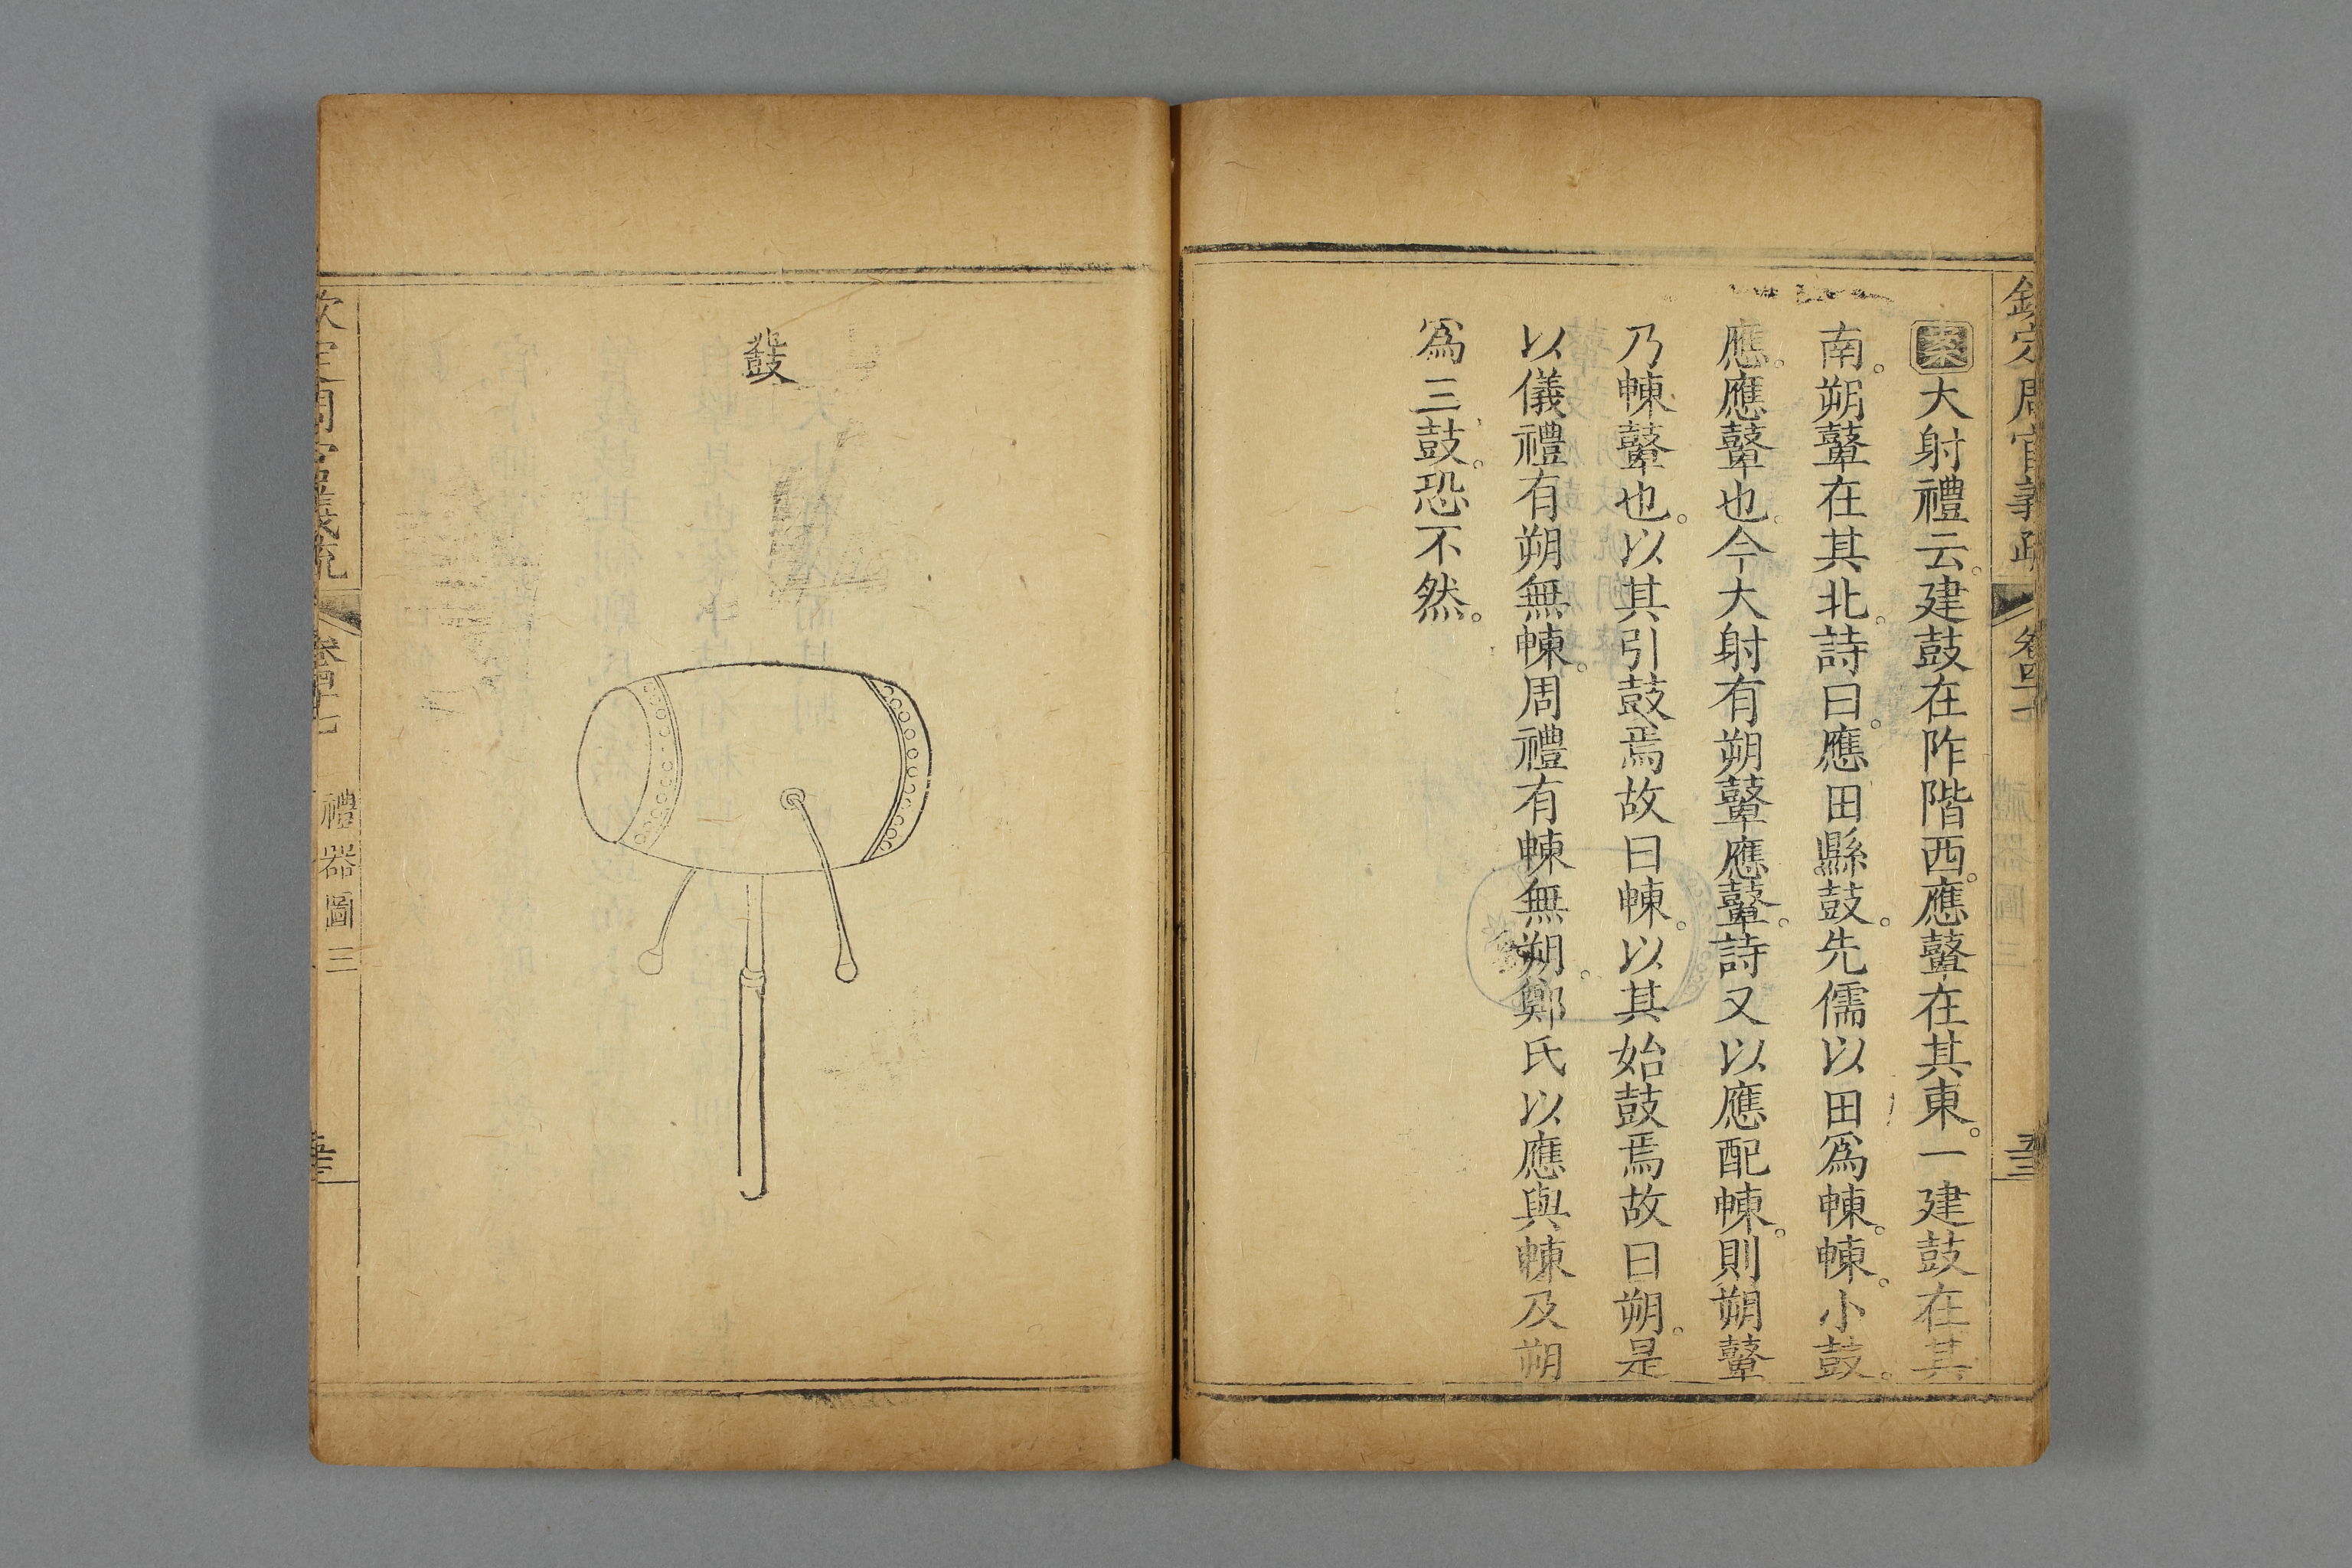 欽定周官義疏 卷四十七
案大射禮云。建鼓在阼階西。應鼙在其東。一建鼓在其
南。朔鼙在其北。詩曰。應田縣鼓。先儒以田為㯥。㯥。小鼓。
應。應鼙也。今大射有朔鼙應鼙。詩又以應配㯥。則朔鼙
乃㯥鼙也。以其引鼓焉故曰㯥。以其始鼓焉故曰朔。是
以儀禮有朔無㯥。周禮有㯥無朔。鄭氏以應與㯥及朔
為三鼓。恐不然。
鼗
欽定周官義疏 卷四十七 禮器圖三